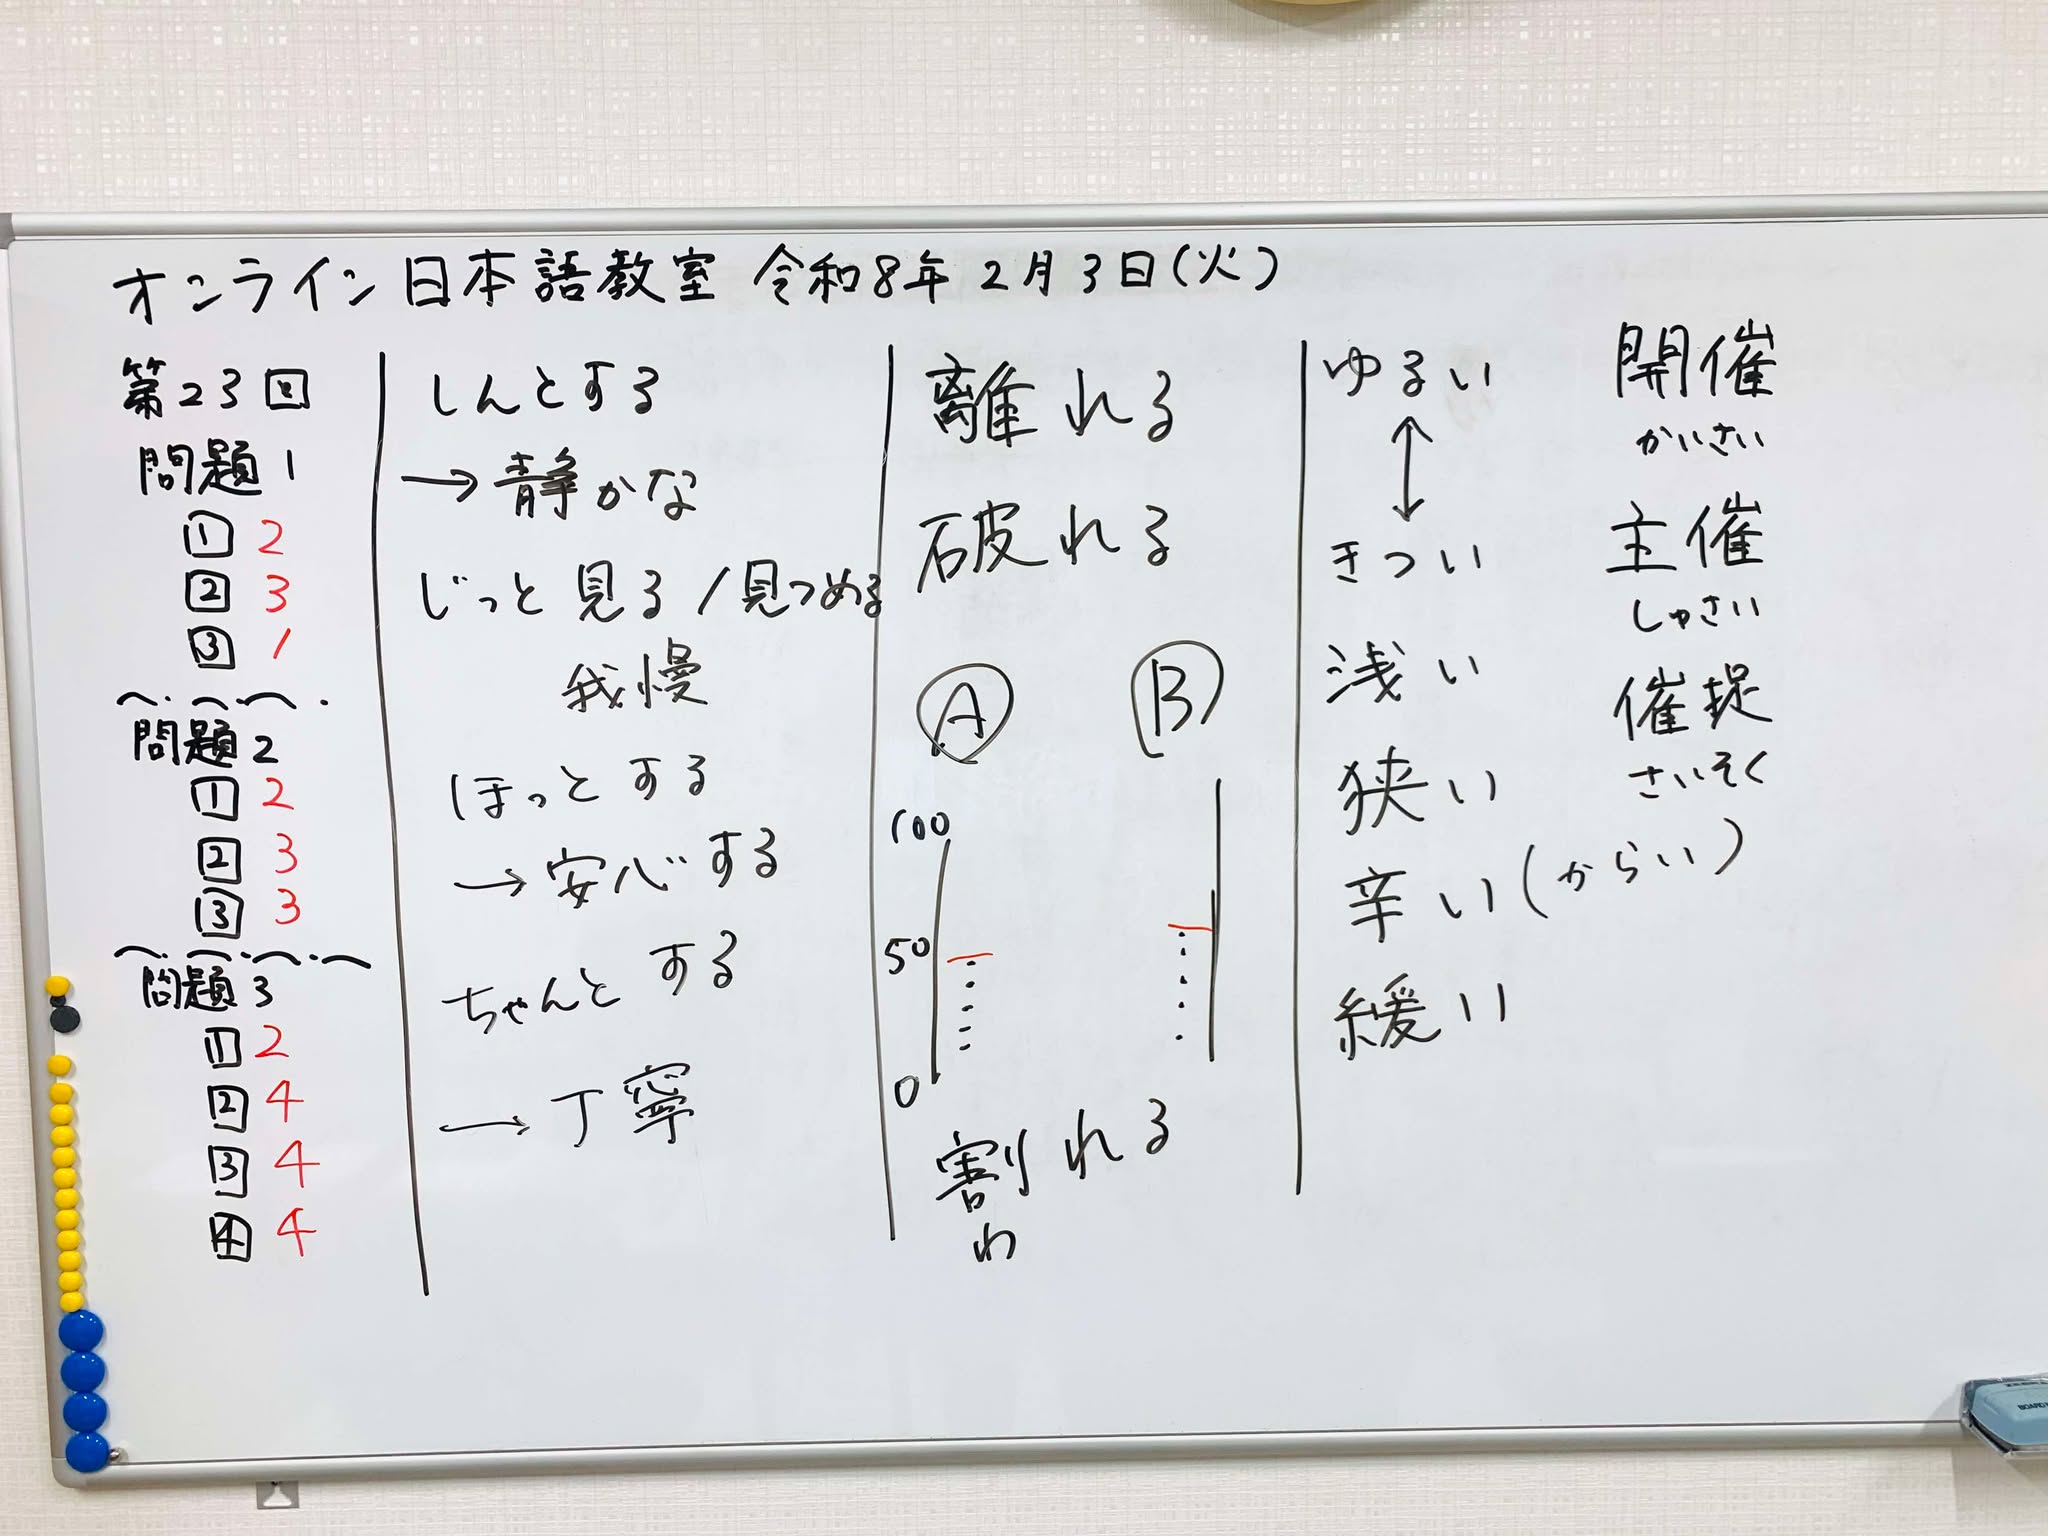 オンライン日本語教室 令和8年2月3日(火)
第23回
問題1
1 2
2 3
3 1
問題2
1 2
2 3
3 3
問題3
1 2
2 4
3 4
4 4
しんとする
→静かな
じっと見る/見つめる
我慢
ほっとする
→安心する
ちゃんとする
→丁寧
離れる
破れる
A B
100
50
0
割れる
わ
ゆるい
↕
きつい
浅い
狭い
辛い(からい)
緩い
開催
かいさい
主催
しゅさい
催促
さいそく